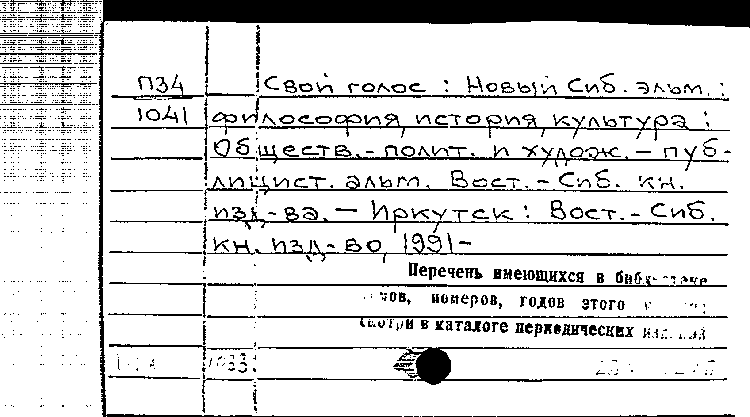 П34 Свой голос : Новый Сиб. альм. :
1041 философия, история, культура :
Обществ.-полит. и худож. - пуб-
лицист. альм. Вост.-Сиб. кн.
изд-ва. — Иркутск : Вост.-Сиб.
кн. изд-во, 1991-
Перечень имеющихся в
номеров, годов этого
смотри в каталоге периодических изданий